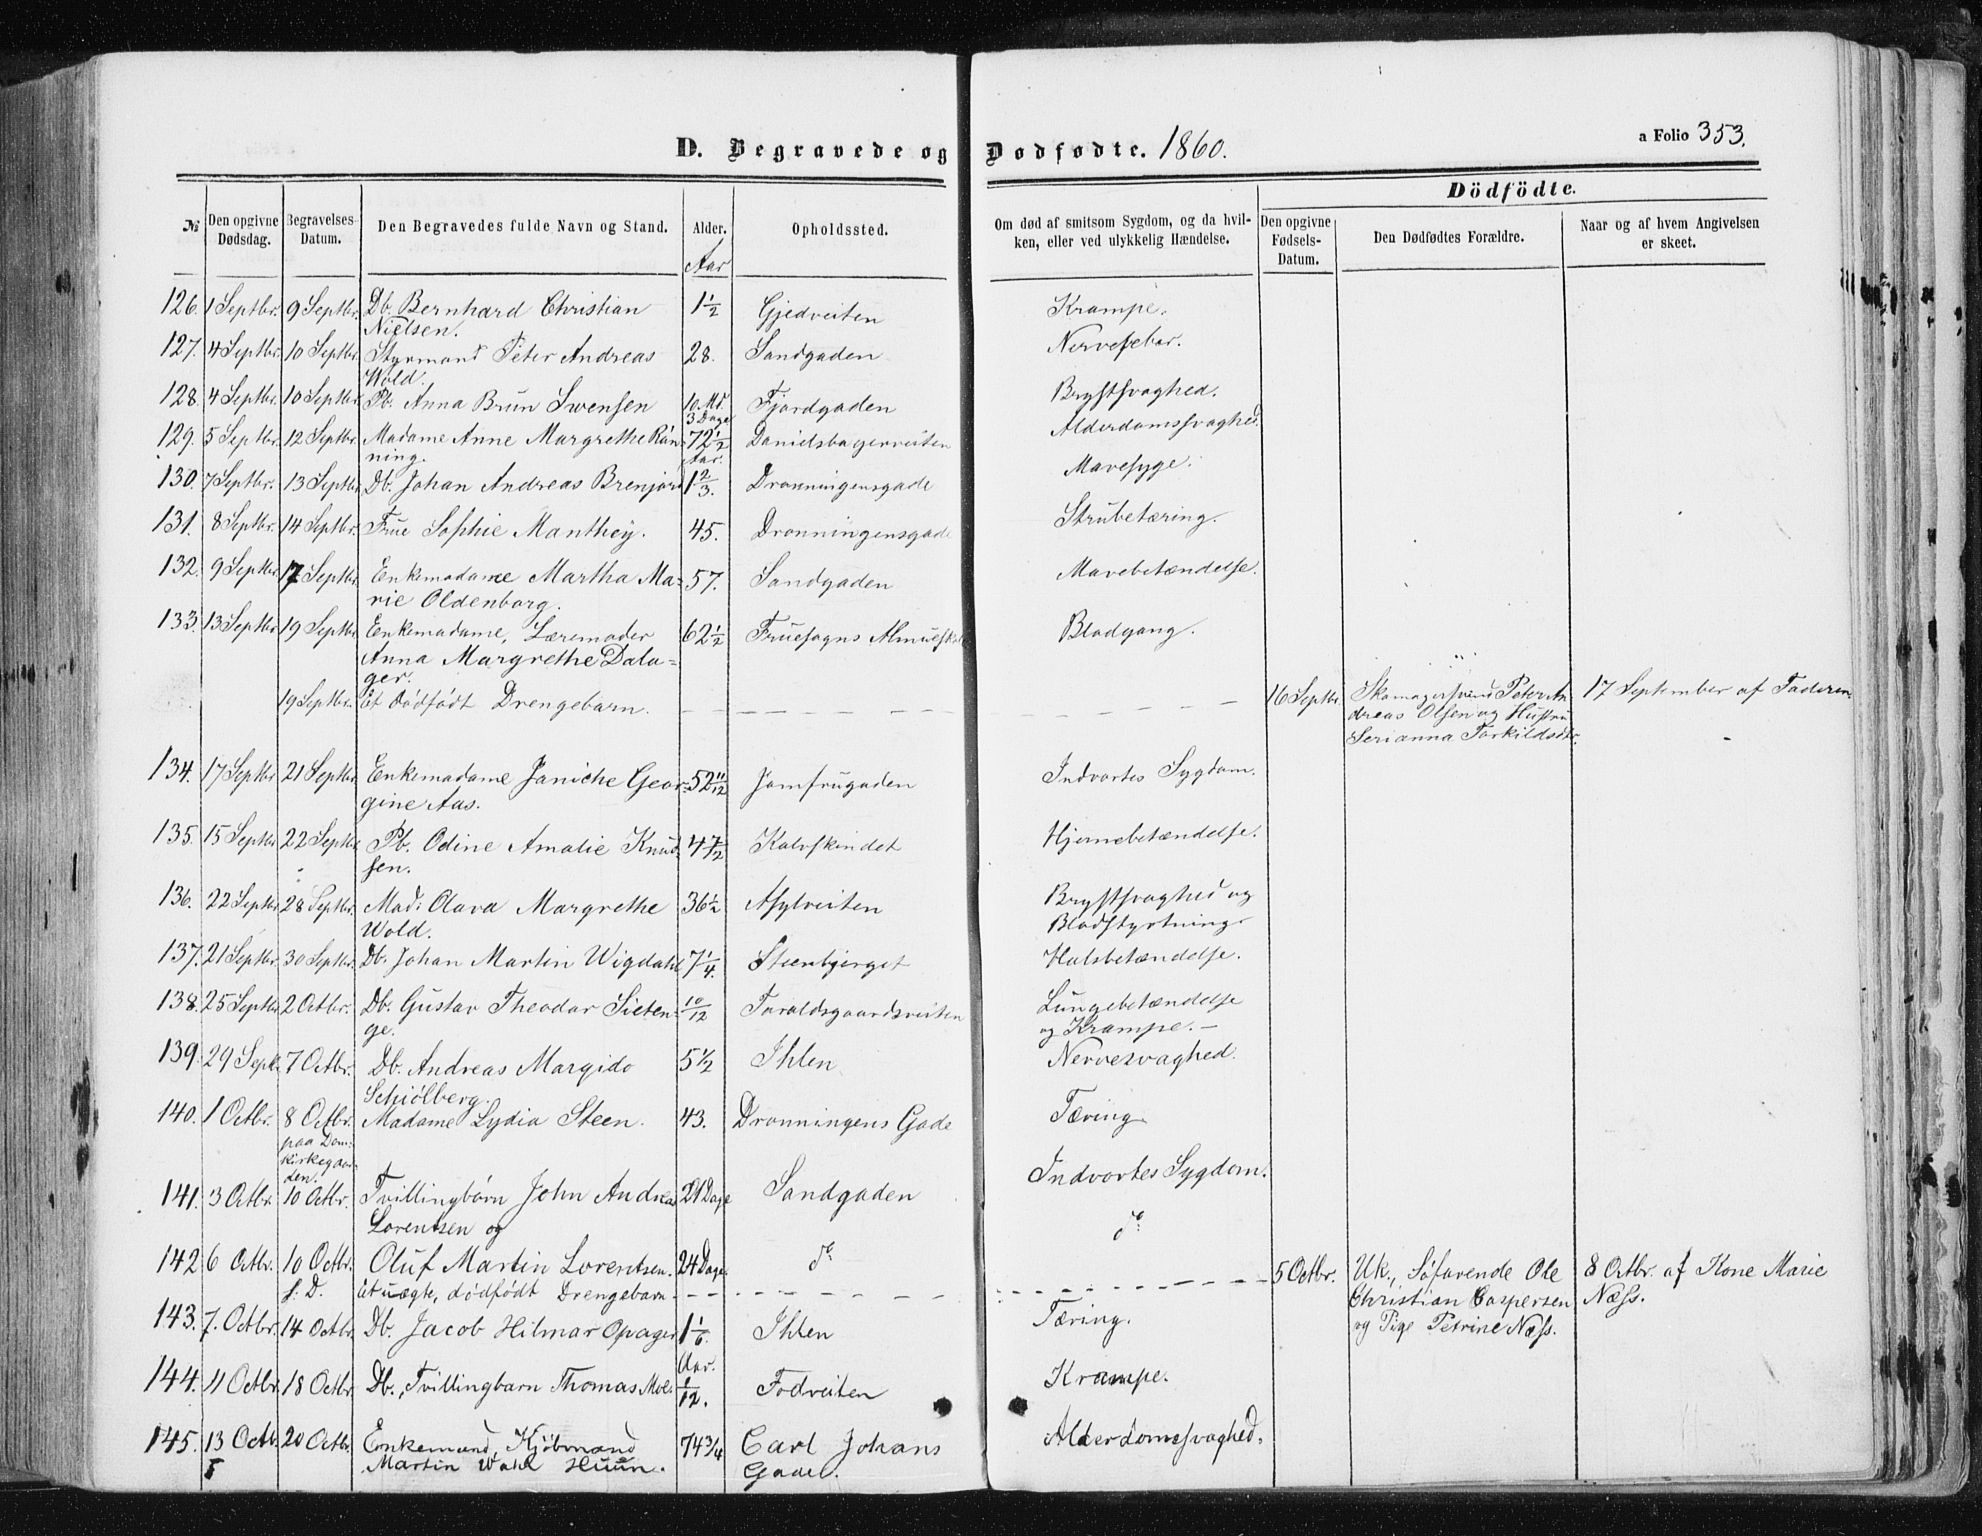 D. Begravede og Dødfødte. 1860.
a Folio 353.
№
Den opgivne Dødsdag.
Begravelses-Datum.
Den Begravedes fulde Navn og Stand.
Alder.
Aar
Opholdssted.
Om død af smitsom Sygdom, og da hvil-
ken, eller ved ulykkelig Hændelse.
Dödfödte.
Den opgivne Fødsels-Datum.
Den Dødfødtes Forældre.
Naar og af hvem Angivelsen er skeet.
126. 1 Septbr. 9 Septbr. Db. Bernhard Christian 1½ Gjedveiten Krampe.
Nielsen.
127. 4 Septbr. 10 Septbr. Styrmand Peter Andreas 28. Sandgaden Nervefeber.
Wold.
128. 4 Septbr. 10 Septbr. Pb. Anna Brun Svensen 10 Md. 3 Dage Fjordgaden Brystsvaghed.
129. 5 Septbr. 12 Septbr. Madame Anne Margrethe Røn- 72½ Aar. Danielsbagerveiten Alderdomssvaghed.
ning.
130. 7 Septbr. 13 Septbr. Db. Johan Andreas Brenjord 1⅔. Dronningensgade Mavesyge.
131. 8 Septbr. 14 Septbr. Frue Sophie Manthey. 45. Dronningensgade Strubetæring.
132. 9 Septbr. 17 Septbr. Enkemadame Martha Ma- 57. Sandgaden Mavebetændelse.
rie Oldenborg.
133. 13 Septbr. 19 Septbr. Enkemadame, Læremoder 62½ Fruesogns Blodgang.
Anna Margrethe Dala-
ger.
19 Septbr. Et dødfødt Drengebarn. 16 Septbr. Skomagersvend Peter An- 17 September af Faderen
dreas Olsen og Hustru
Serianna Torkildsdtr.
134. 17 Septbr 21 Septbr. Enkemadame Janiche Geor- 52 11/12 Jomfrugaden Indvortes Sygdom.
gine Aas.
135. 15 Septbr 22 Septbr Pb. Odine Amalie Knud- 4 7/12 Kalvskindet Hjernebetændelse.
sen.
136. 22 Septbr 28 Septbr. Mad: Olava Margrethe 36½ Asylveiten Brystsvaghed og
Wold. Blodstyrtning.
137. 21 Septbr. 30 Septbr. Db. Johan Martin Wigdahl 7¼. Steenbjerget Halsbetændelse.
138. 25 Septbr 2 Octbr. Db. Gustav Theodor Sieten- 10/12 Taraldsgaardsveiten Lungebetændelse
ge. og Krampe.
139. 29 Sept. 7 Octbr. Db. Andreas Margido 5½ Ihlen Nervesvaghed.
Schiölberg.
140. 1 Octbr. 8 Octbr. Madame Lydia Steen. 43. Dronningens Gade Tæring
paa Dom-
kirkegaar-
den.
141. 3 Octbr. 10 Octbr. Tvillingbørn John Andreas 21 Dage Sandgaden Indvortes Sygdom.
Lorentsen og
142 6 Octbr. 10 Octbr. Oluf Martin Lorentsen. 24 Dage do do
s. D. et uægte, dødfødt Drengebarn 5 Octbr. Uk., Søfarende Ole 8 Octbr. af Kone Marie
Christian Caspersen Næss.
og Pige Petrine Næss.
143. 7. Octbr. 14 Octbr. Db. Jacob Hilmar Opager 1⅙ Aar. Ihlen Tæring.
144. 11 Octbr. 18 Octbr Db., Tvillingbarn Thomas Moe. 1/12. Fodveiten Krampe.
145. 13 Octbr. 20 Octbr. Enkemand, Kjøbmand 74¾ Carl Johans Alderdomssvaghed.
Martin Wahl Huun. Gade.